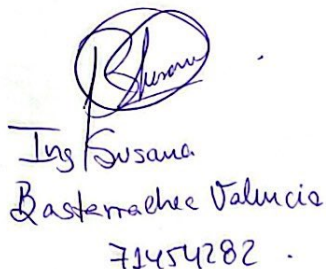 Susana
Ing Susana
Basterrachea Valencia
71454282 .